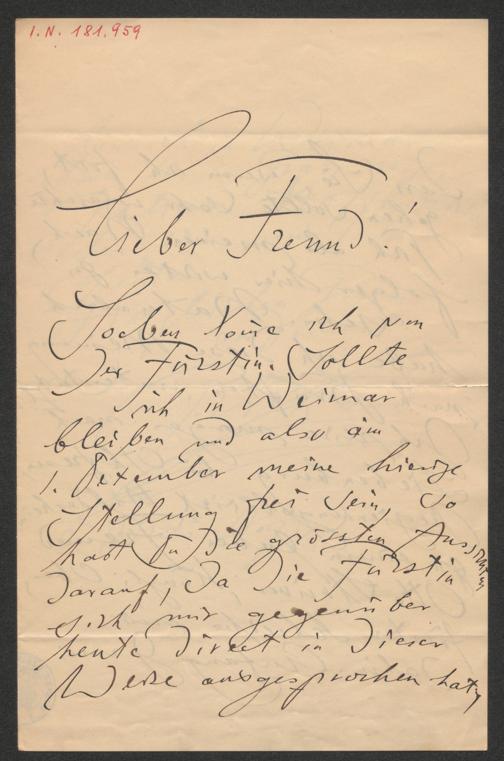 I.N. 181.959
Lieber Freund!
Soeben kom̄e ich von
der Fürstin. Sollte
ich in Weimar
bleiben und also am
1. Dezember meine hiesige
Stellung frei sein, so
hast Du die grössten Aussichten
darauf, da die Fürstin
sich mir gegenüber
heute direct in dieser
Weise ausgesprochen hat,